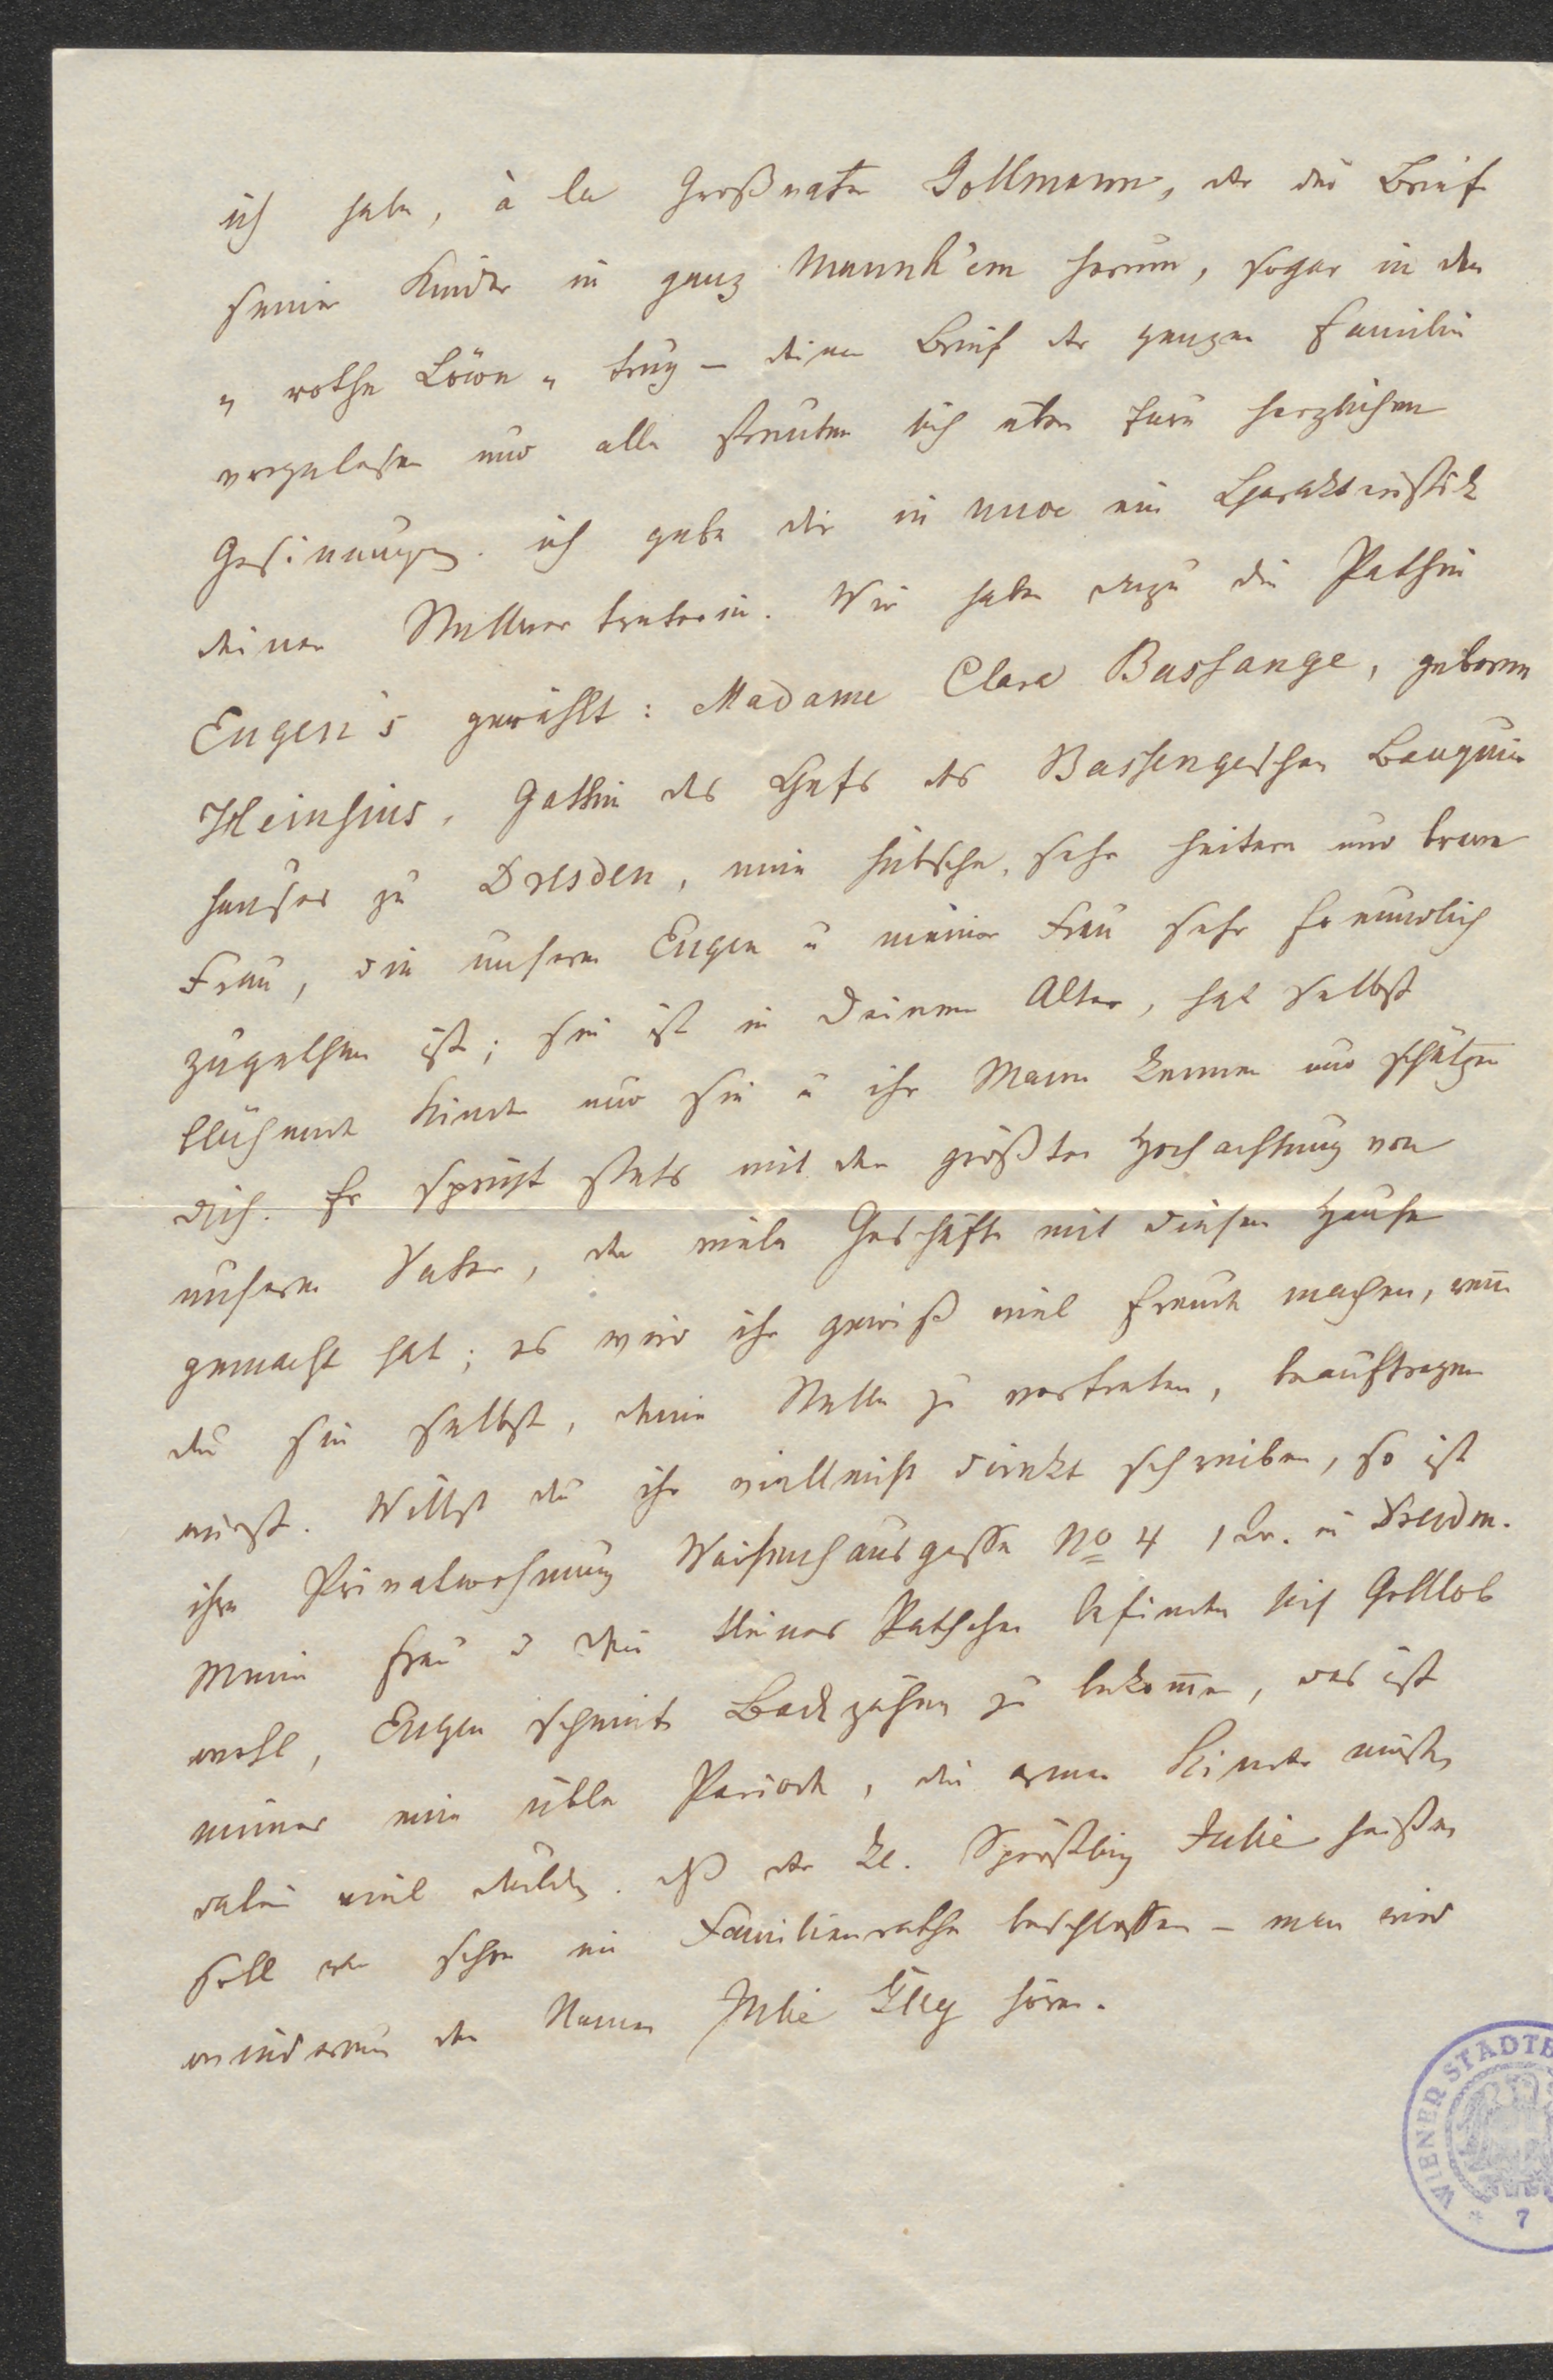 ich habe, à la Großvater Gollmann, der die Briefe
seiner Kinder in ganz Mannh'em herum, sogar in den
„ rothe Löwen „ trug – deinen Brief der ganzen Familie
vorgelesen und alle freuten sich über Eure herzlichen
Gesinnungen. ich gebe dir in nuce eine Charakteristik
deiner Stellvertreterin. Wir haben dazu die Pathin
Eugen's gewählt: Madame Clara Bassange, geborne
Heinsius, Gattin des Chefs des Bassengeschen Banquier
hauses zu Dresden, eine hübsche, sehr heitere und brave
Frau, die unserm Eugen u meiner Frau sehr freundlich
zugethan ist; sie ist in Deinem Alter, hat selbst
blühende Kinder und sie u ihr Mann kennen und schätzen
dich. Er spricht stets mit der größten Hochachtung von
unserm Vater, der viele Geschäfte mit diesem Hause
gemacht hat; es wird ihr gewiß viel Freude machen, weñ
du sie selbst, deine Stelle zu vertreten, beauftragen
wirst. Willst du ihr vielleicht direkt schreiben, so ist
ihre Privatwohnung Waisenhausgasse No 4 in Dresden.
Meine Frau u dein kleines Pathchen befinden sich Gottlob
wohl, Eugen scheint Backzähne zu bekom̄en, das ist
immer eine üble Periode, die armen Kinder müssen
dabei viel dulden. Daß der kl. Sprößling Julie heißen
soll war schon im Familienrathe beschlossen – man wird
wiederum den Namen Julie hören.
WIENER STADTB
* 7